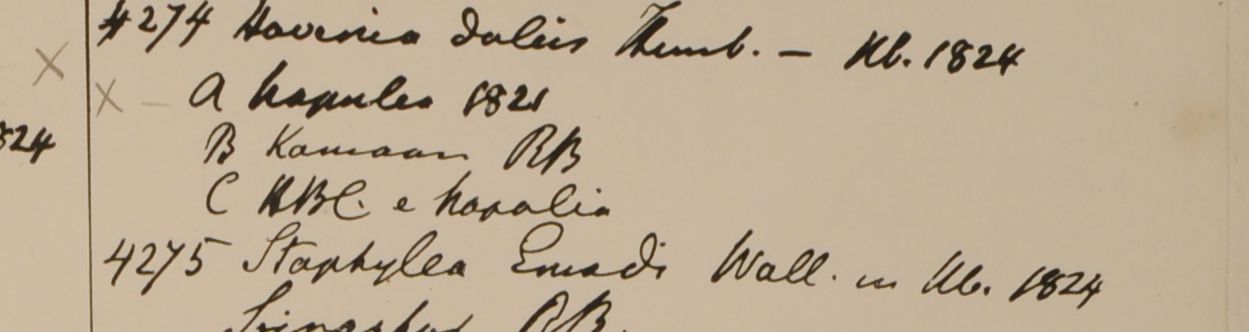 4274 Hovenia dulcis Thunb. – Hb. 1824
824
A Napulea 1821
B Kamaon RB
C HBC. e Napalia
4275 Staphylea Emodi Wall. in Hb. 1824
Srinaghur RB.